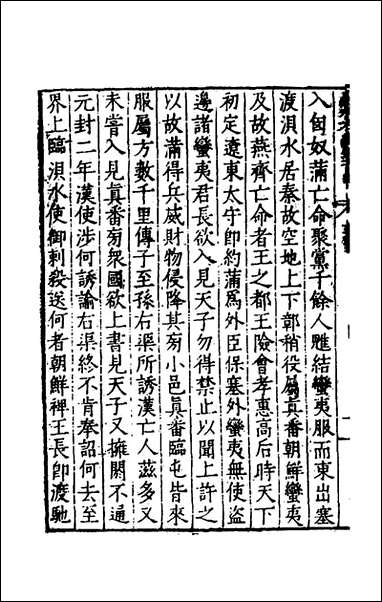 入匈奴蒲亡命聚黨千餘人雕結蠻夷服而東出塞
渡浿水居秦故空地上下鄣稍役屬真番朝鮮蠻夷
及故燕齊亡命者王之都王險會孝惠高后時天下
初定遼東太守即約蒲爲外臣保塞外蠻夷無使盜
邊諸蠻夷君長欲入見天子勿得禁止以聞上許之
以故蒲得兵威財物侵降其旁小邑真番臨屯皆來
服屬方數千里傳子至孫右渠所誘漢亡人茲多又
未嘗入見真番旁衆國欲上書見天子又擁閼不通
元封二年漢使涉何誘諭右渠終不肯奉詔何去至
界上臨浿水使御刺殺送何者朝鮮裨王長即渡馳